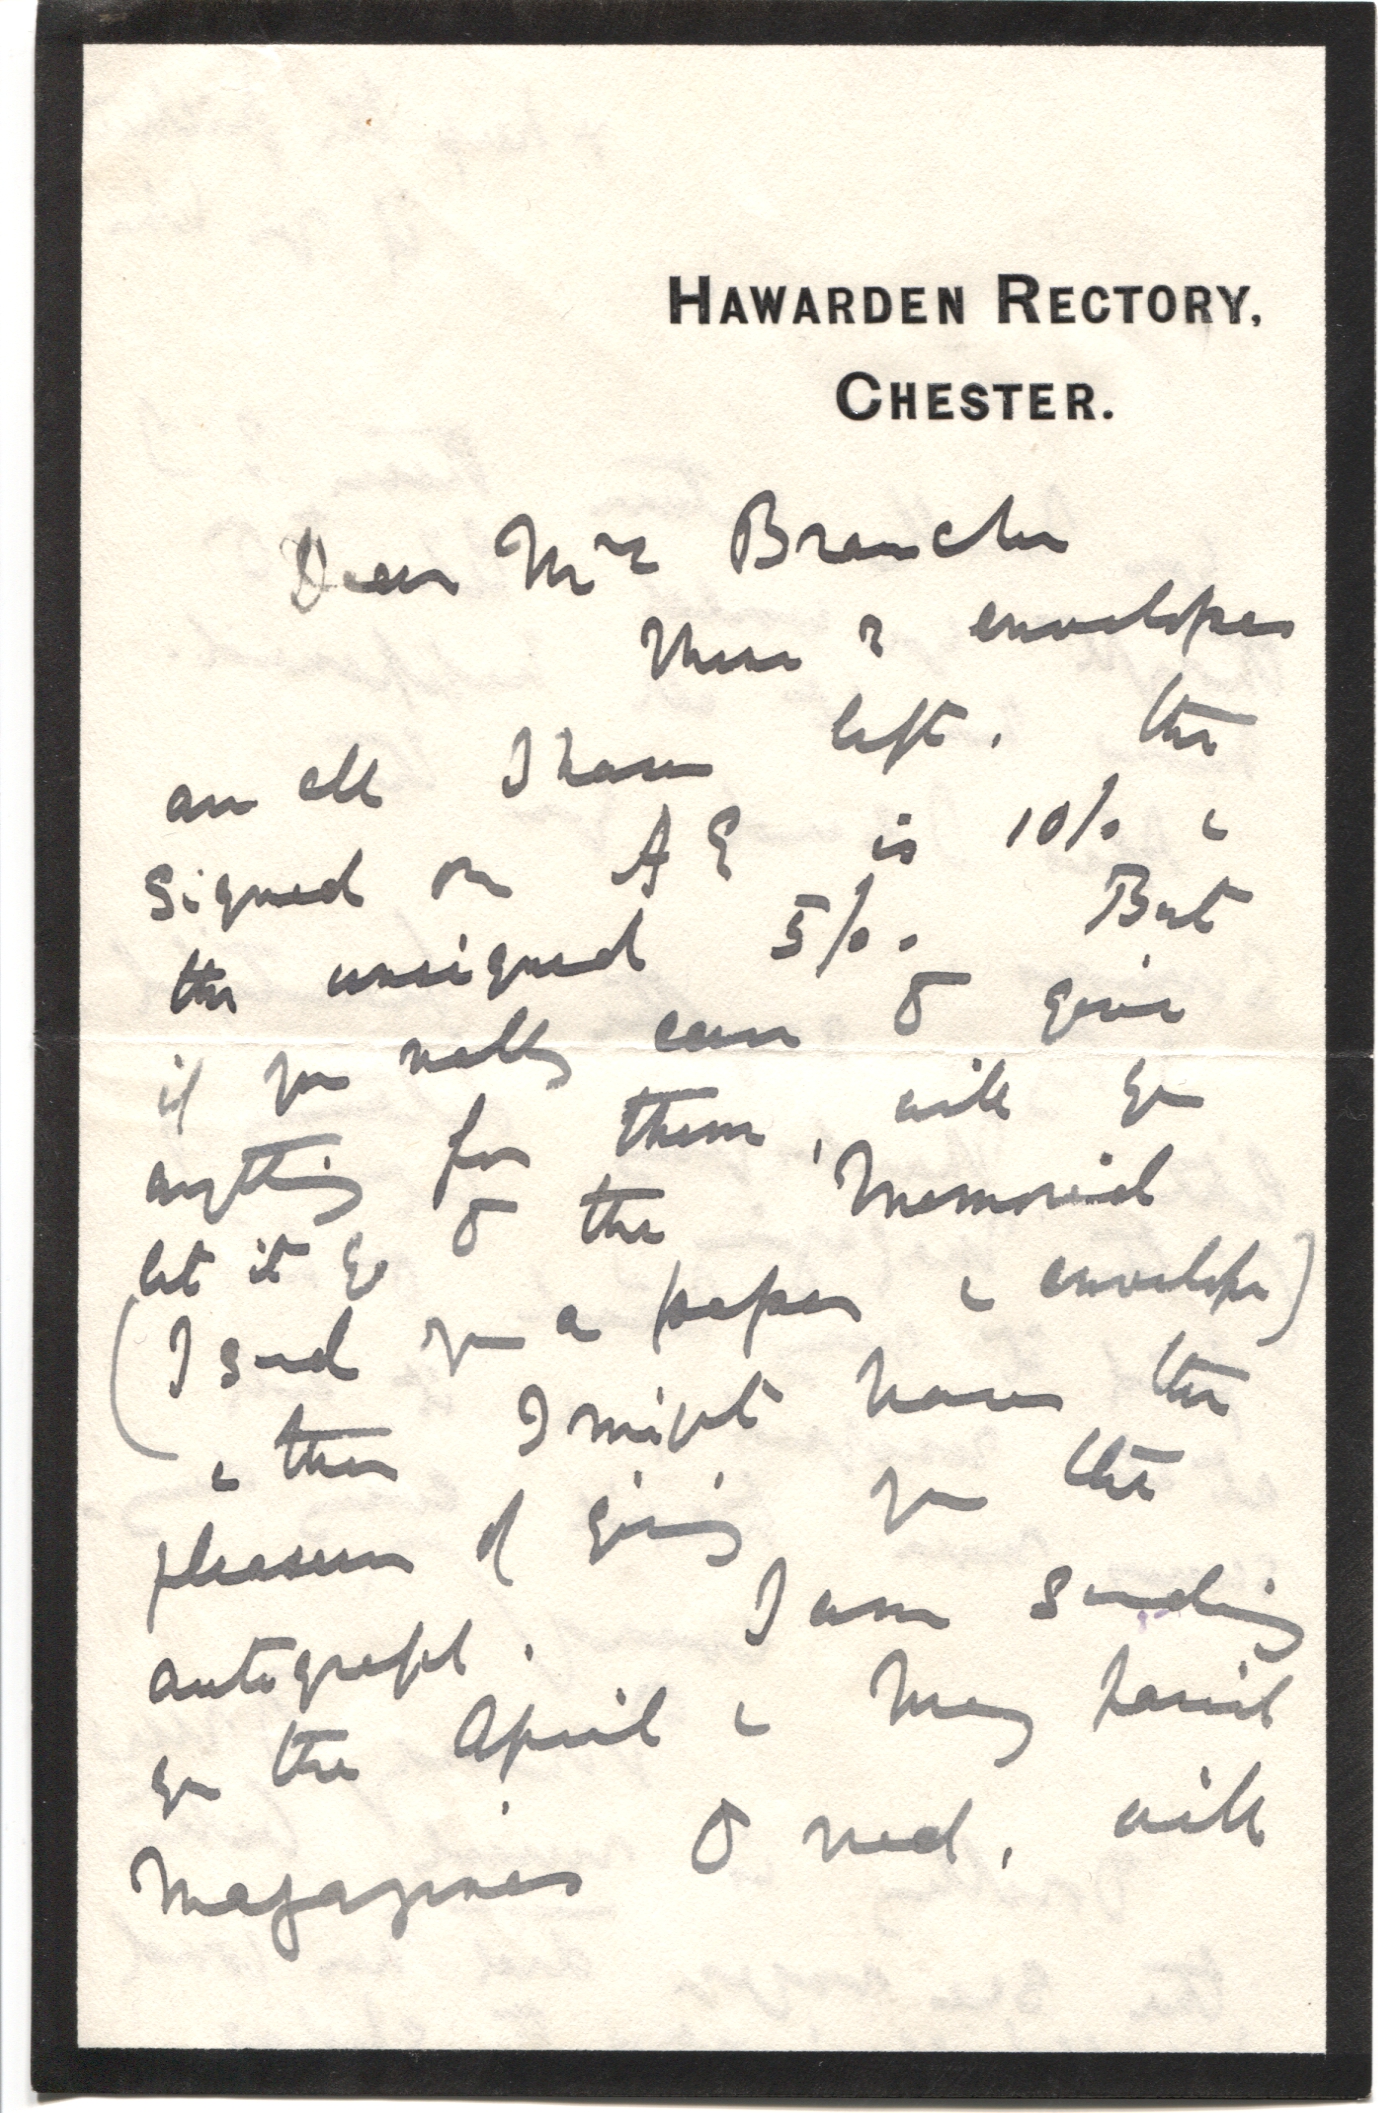 HAWARDEN RECTORY,
CHESTER.
Dear Mrs
These 2 envelopes
are all I have left. The
signed one is 10/. &
the unsigned 5/. . But
if you really care to give
anything for them, will you
let it go to the Memorial
(I send you a paper & envelope)
& then I might have the
pleasure of giving you the
autograph. I am sending
you the April & May
Magazines to read, will